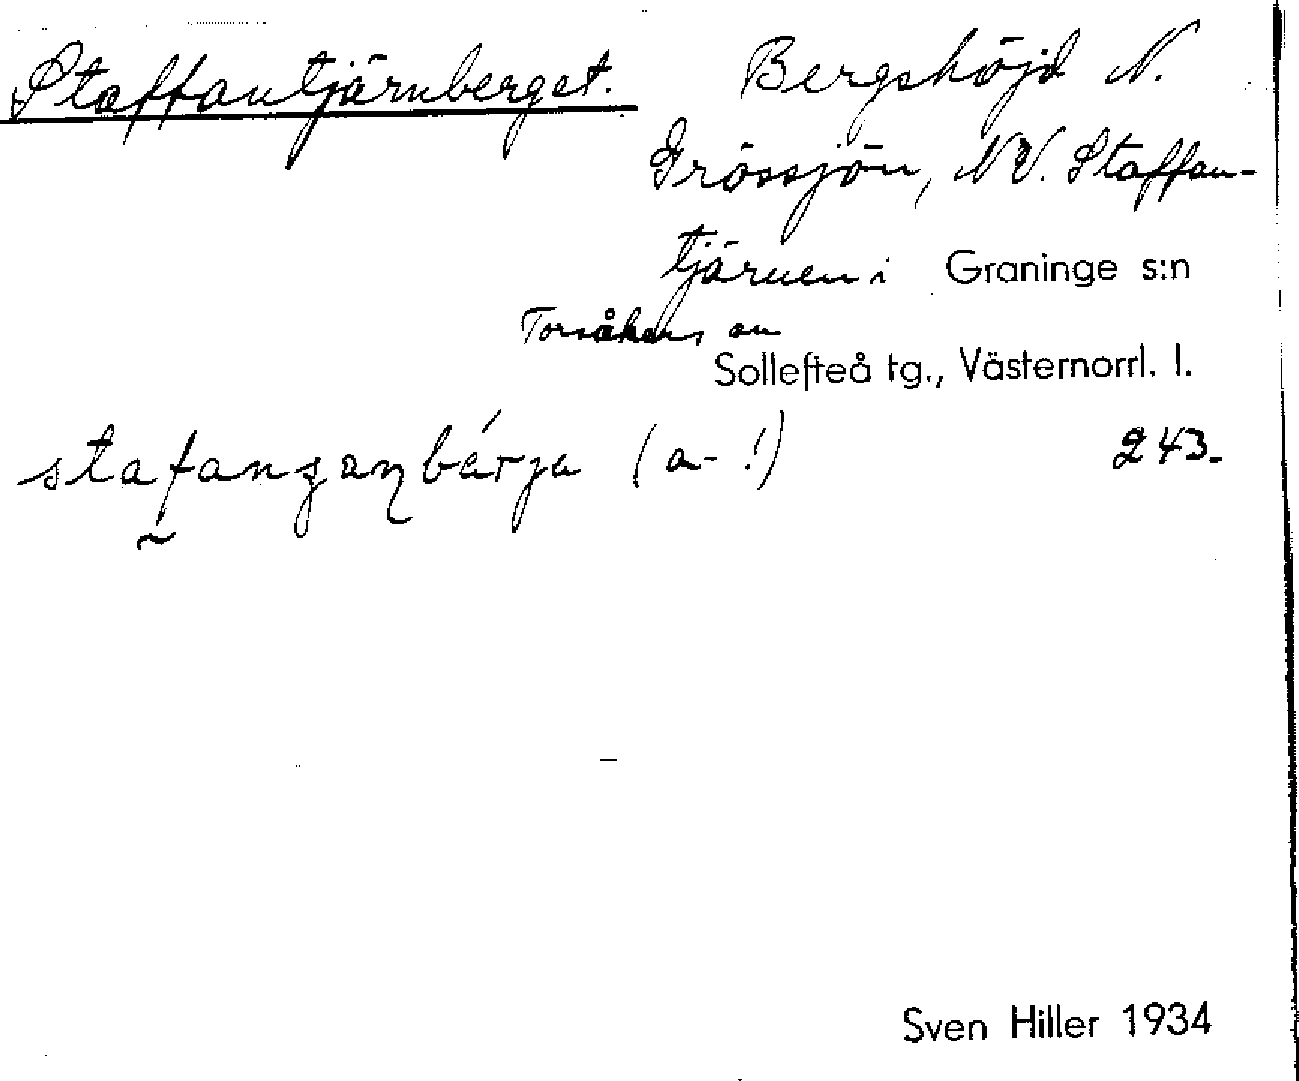 Staffantjärnberget. Bergshöjd N.
Grössjön, NV. Staffan-
tjärnen i Graninge s:n
Torsåkers
Sollefteå tg., Västernorrl. l.
(a- !) 243.
Sven Hiller 1934